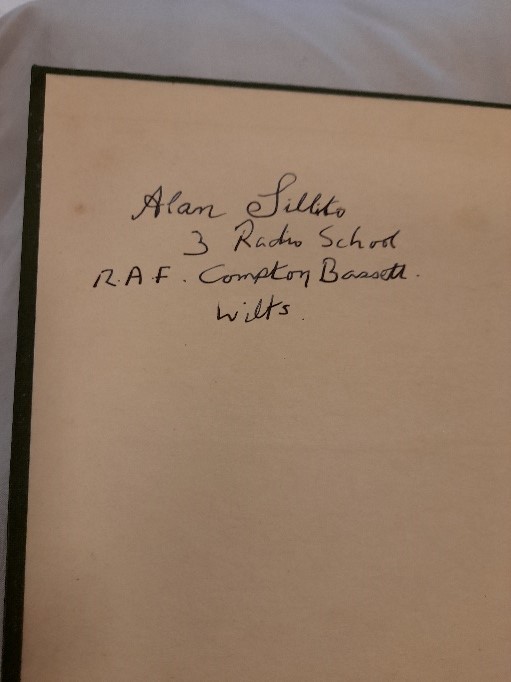 Alan Sillito
3 Radio School
R.A.F. Compton Bassett.
Wilts.